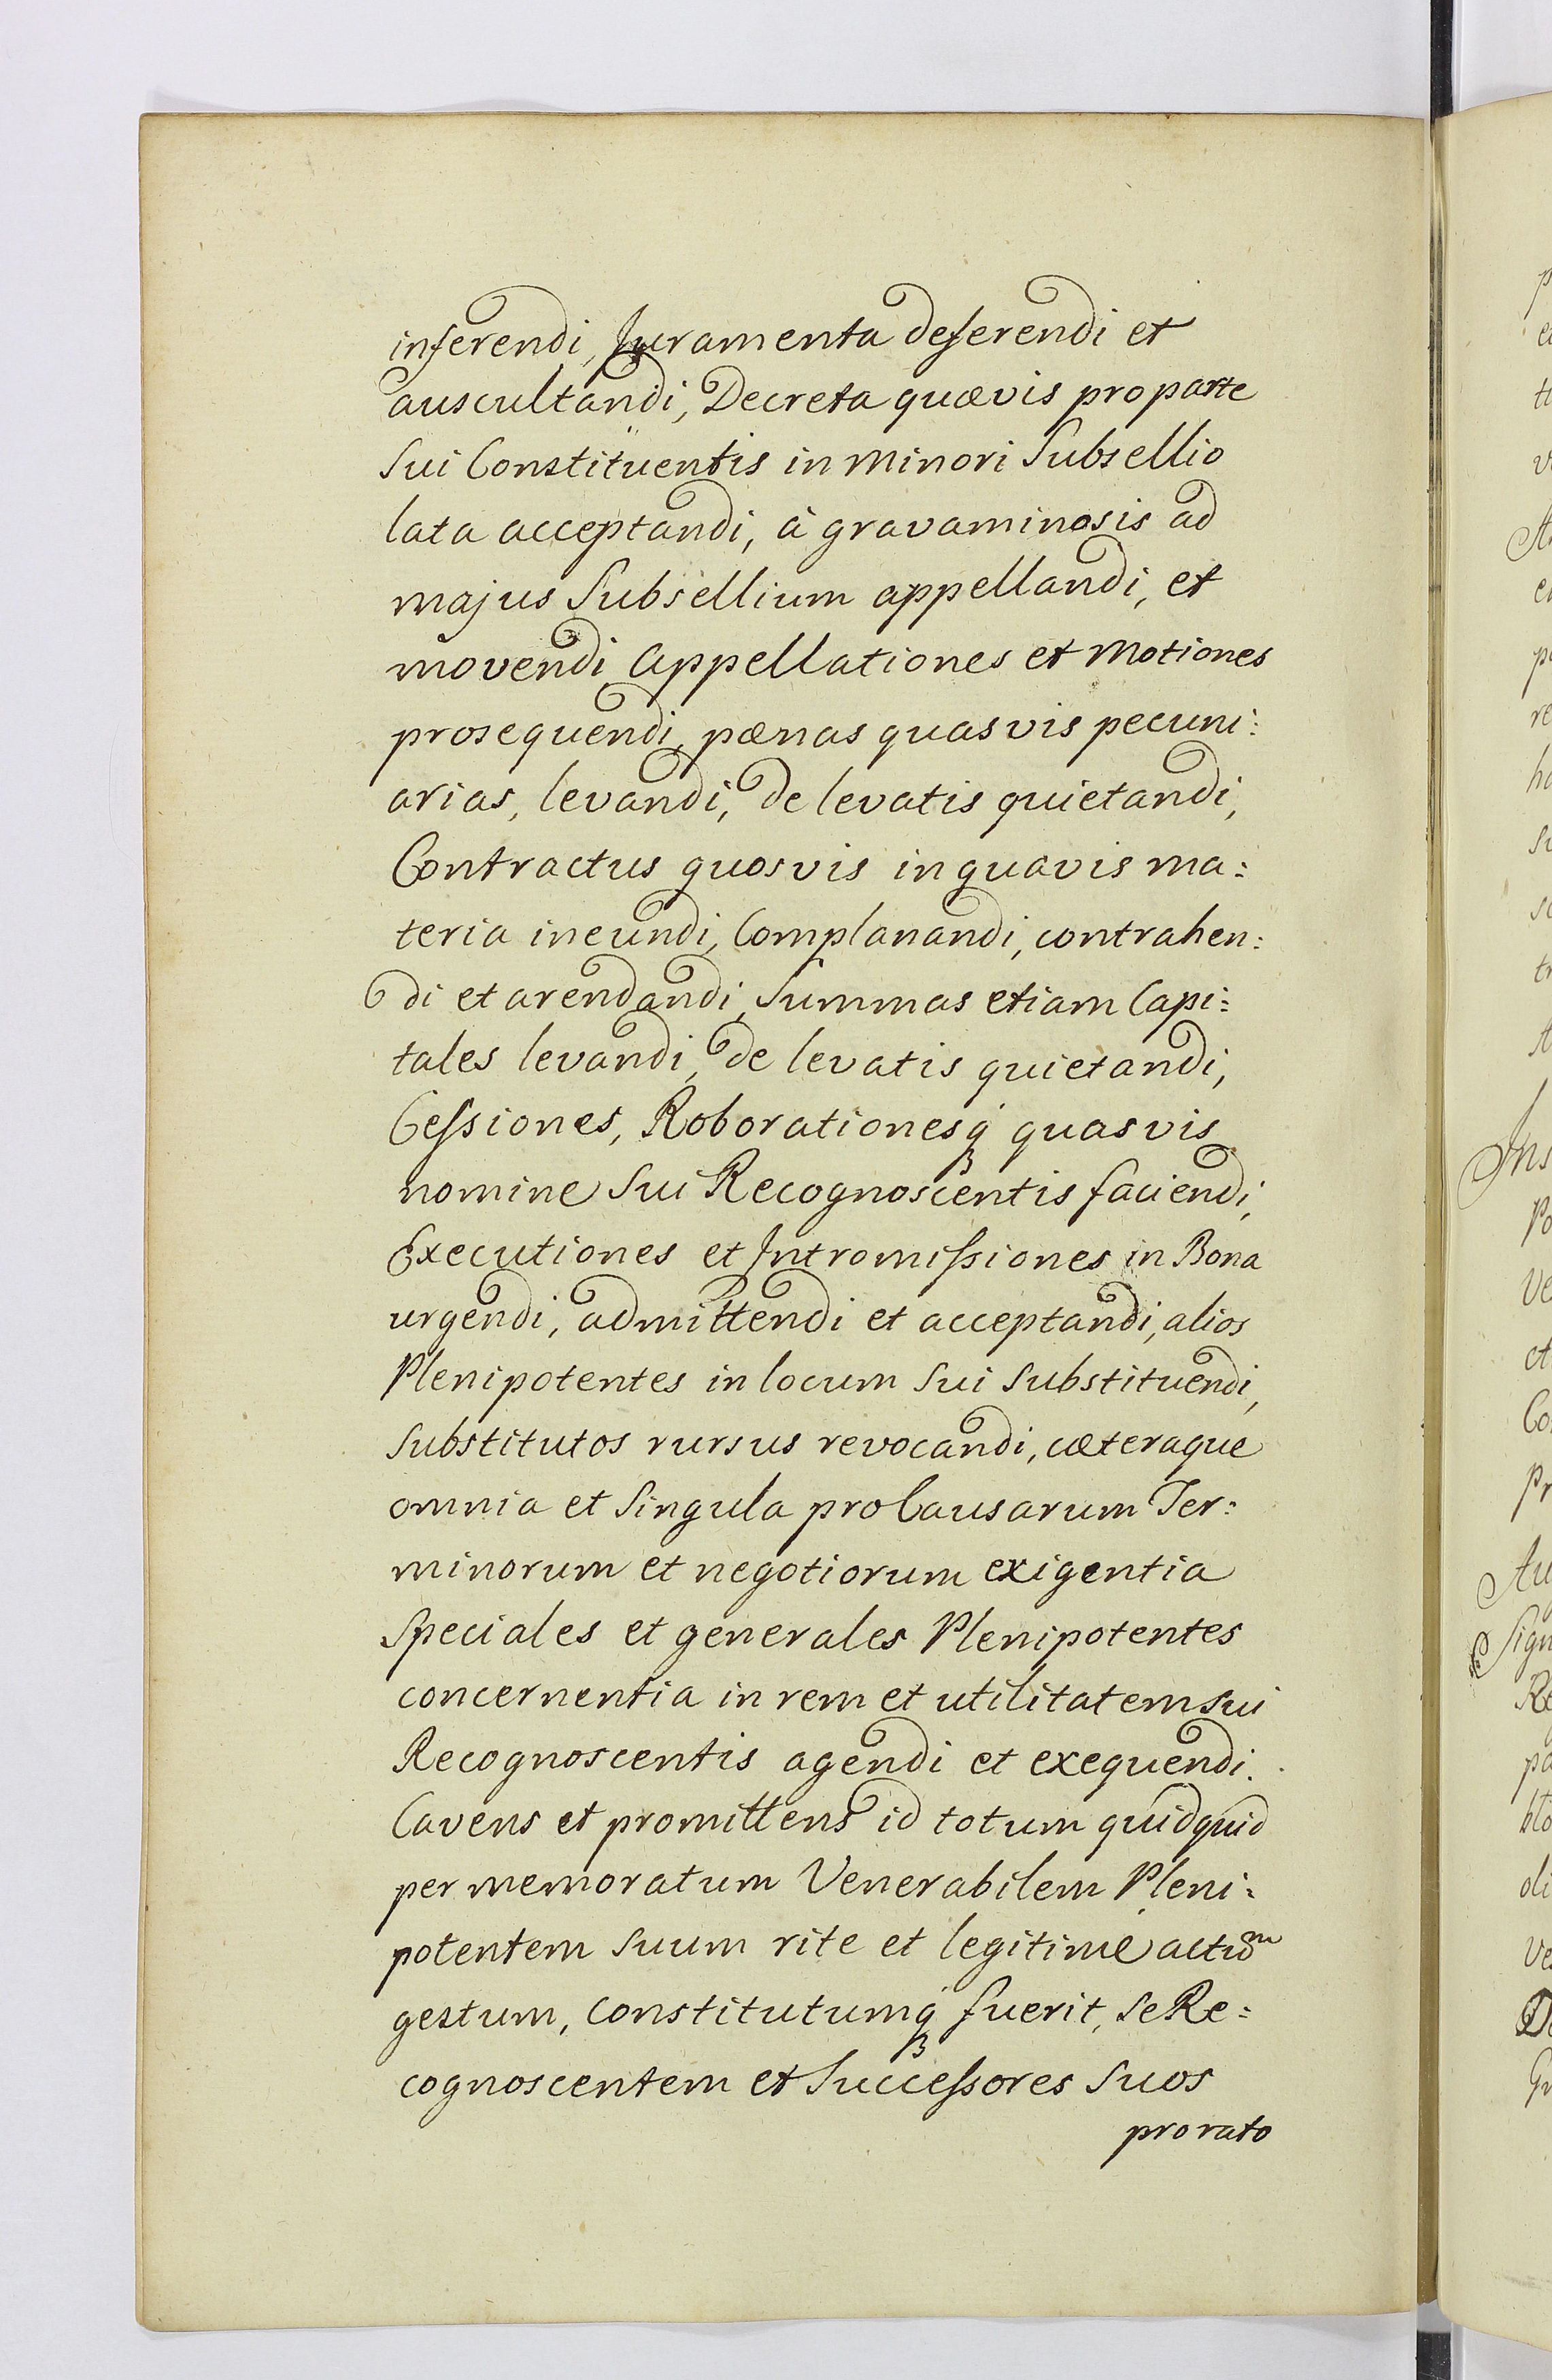 inferendi, Juramenta deferendi et
auscultandi, Decreta quævis pro parte
Sui Constituentis in minori Subsellio
lata acceptandi, à gravaminosis ad
majus Subsellium appellandi, et
movendi Appellationes et Motiones
prosequendi, pænas quasvis pecuni:
arias, levandi, de levatis quietandi,
Contractus quosvis in quavis ma:
teria ineundi, Complanandi, contrahen:
di et arendandi, Summas etiam Capi:
tales levandi, de levatis quietandi,
Cessiones, Roborationesq́ꝫ quasvis
nomine Sui Recognoscentis faciendi,
Executiones et Intromissiones in Bona
urgendi, admittendi et acceptandi, alios
Plenipotentes in locum Sui Substituendi,
Substitutos rursus revocandi, cæteraque
omnia et Singula pro Causarum Ter:
minorum et negotiorum exigentia
Speciales et generales Plenipotentes
concernentia in rem et utilitatem sui
Recognoscentis agendi et exequendi.
Cavens et promittens id totum quidquid
per memoratum Venerabilem Pleni:
potentem suum rite et legitime actuᵐ
gestum, constitutumq́ꝫ fuerit, se Re:
cognoscentem et Successores Suos
pro rato